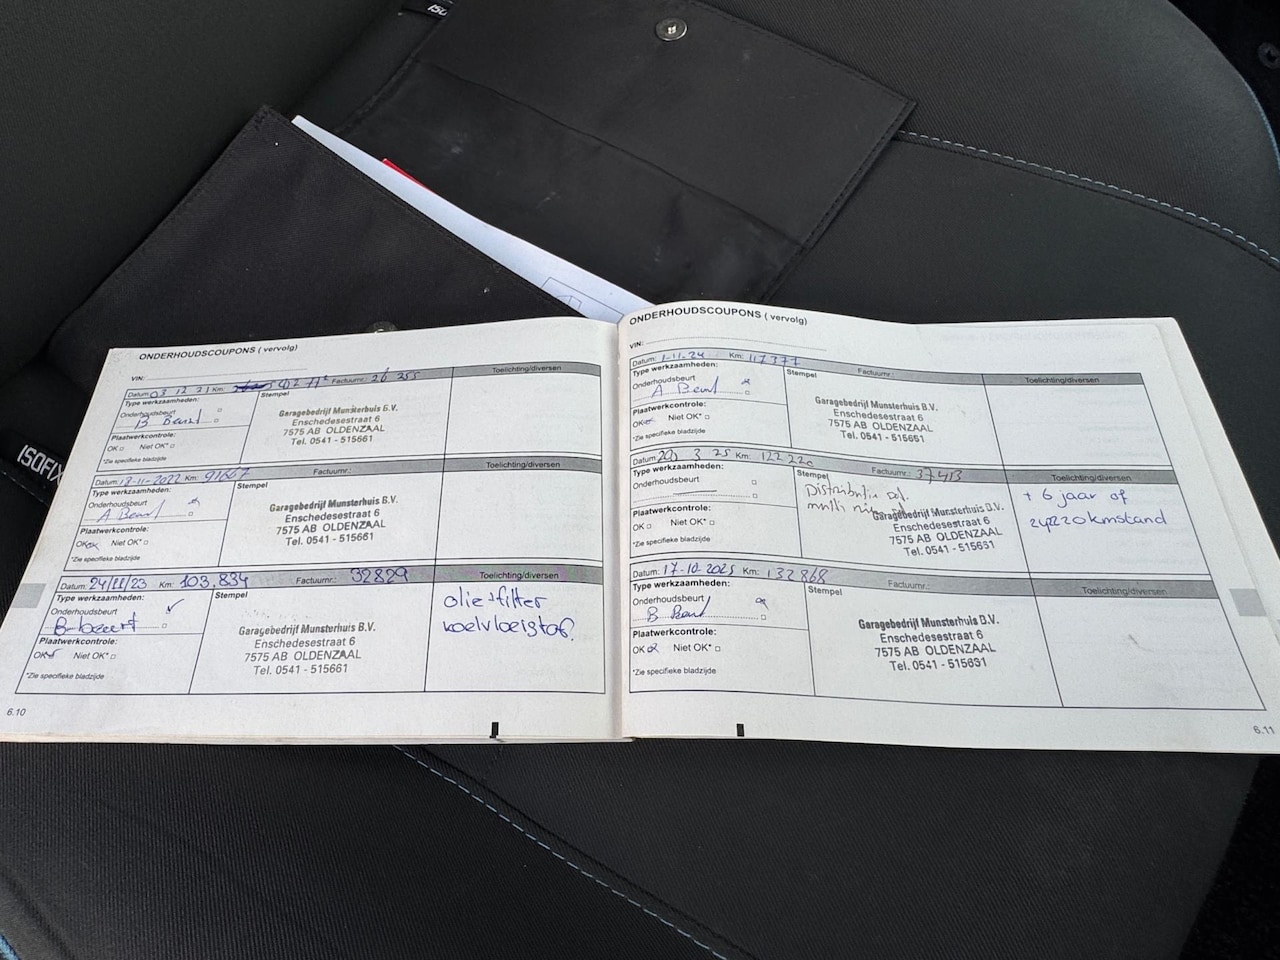 ISOFIX
ONDERHOUDSCOUPONS ( vervolg)
VIN:
Datum: 03 12 21 Km: Factuurnr.: 26 255
Toelichting/diversen
Type werkzaamheden:
Stempel
Onderhoudsbeurt
B Beurt
Plaatwerkcontrole:
OK Niet OK*
*Zie specifieke bladzijde
Garagebedrijf Munsterhuis B.V.
Enschedesestraat 6
7575 AB OLDENZAAL
Tel. 0541 - 515661
Datum: 18-11-2022 Km: Factuurnr.:
Toelichting/diversen
Type werkzaamheden:
Stempel
Onderhoudsbeurt
A Beurt
Plaatwerkcontrole:
OK Niet OK*
*Zie specifieke bladzijde
Garagebedrijf Munsterhuis B.V.
Enschedesestraat 6
7575 AB OLDENZAAL
Tel. 0541 - 515661
Datum: 24/11/23 Km: 103.834 Factuurnr.: 32829
Toelichting/diversen
Type werkzaamheden:
Stempel
Onderhoudsbeurt
B-beurt
Plaatwerkcontrole:
OK Niet OK*
*Zie specifieke bladzijde
Garagebedrijf Munsterhuis B.V.
Enschedesestraat 6
7575 AB OLDENZAAL
Tel. 0541 - 515661
olie+filter
koelvloeistof
6.10
ONDERHOUDSCOUPONS ( vervolg)
VIN:
Datum: 1-11-24 Km: 117377 Factuurnr.:
Toelichting/diversen
Type werkzaamheden:
Stempel
Onderhoudsbeurt
A Beurt
Plaatwerkcontrole:
OK Niet OK*
*Zie specifieke bladzijde
Garagebedrijf Munsterhuis B.V.
Enschedesestraat 6
7575 AB OLDENZAAL
Tel. 0541 - 515661
Datum: 20 3 25 Km: 122220 Factuurnr.: 37413
Toelichting/diversen
Type werkzaamheden:
Stempel
Onderhoudsbeurt
Plaatwerkcontrole:
OK Niet OK*
*Zie specifieke bladzijde
Distributie
Garagebedrijf Munsterhuis B.V.
Enschedesestraat 6
7575 AB OLDENZAAL
Tel. 0541 - 515661
+ 6 jaar of
kmstand
Datum: 17-10-2025 Km: 132868 Factuurnr.:
Toelichting/diversen
Type werkzaamheden:
Stempel
Onderhoudsbeurt
B Beurt
Plaatwerkcontrole:
OK Niet OK*
*Zie specifieke bladzijde
Garagebedrijf Munsterhuis B.V.
Enschedesestraat 6
7575 AB OLDENZAAL
Tel. 0541 - 515661
6.11